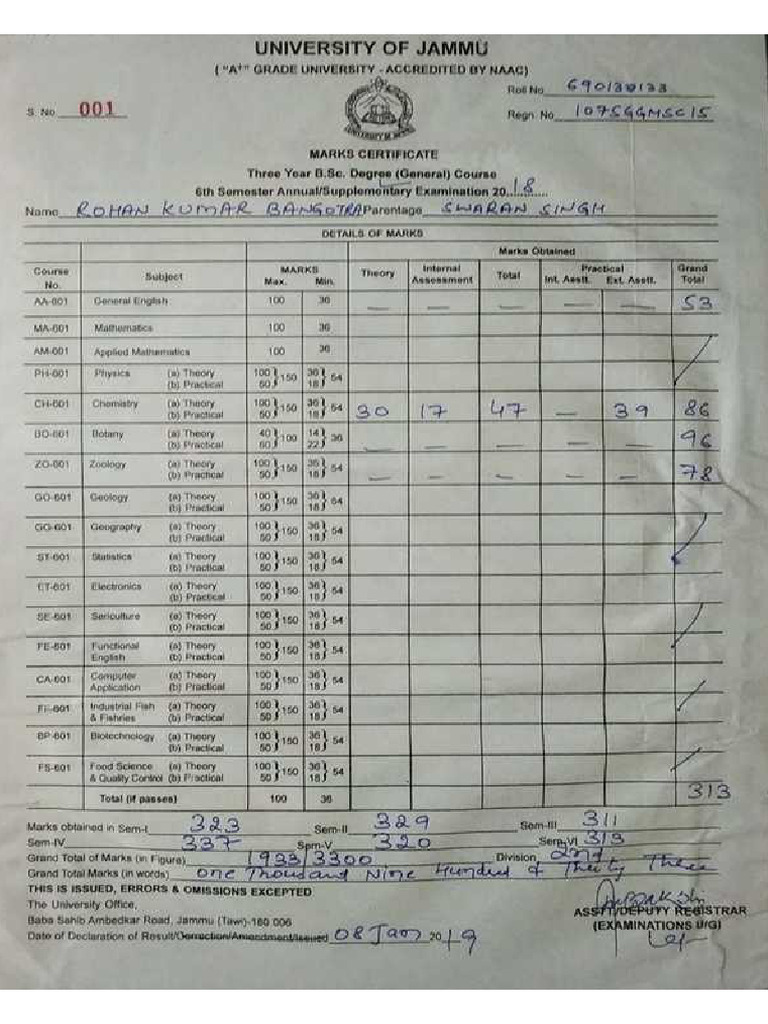 UNIVERSITY OF JAMMU
( "A+" GRADE UNIVERSITY - ACCREDITED BY NAAC)
Roll No. 690130133
S. No. 001
Regn. No. 1075GGMSC15
UNIVERSITY OF JAMMU
MARKS CERTIFICATE
Three Year B.Sc. Degree (General) Course
6th Semester Annual/Supplementary Examination 2018
Name ROHAN KUMAR BANGOTRA Parentage SWARAN SINGH
DETAILS OF MARKS
Marks Obtained
Course No. Subject MARKS Max. Min. Theory Internal Assessment Total Practical Int. Asstt. Ext. Asstt. Grand Total
AA-601 General English 100 36 — — — — — 53
MA-601 Mathematics 100 36
AM-601 Applied Mathematics 100 36
PH-601 Physics (a) Theory 100 } 150 36 } 54
(b) Practical 50 18
CH-601 Chemistry (a) Theory 100 } 150 36 } 54 30 17 47 — 39 86
(b) Practical 50 18
BO-601 Botany (a) Theory 40 } 100 14 } 36 — — — — 96
(b) Practical 60 22
ZO-601 Zoology (a) Theory 100 } 150 36 } 54 — — — — — 78
(b) Practical 50 18
GO-601 Geology (a) Theory 100 } 150 36 } 54
(b) Practical 50 18
GG-601 Geography (a) Theory 100 } 150 36 } 54
(b) Practical 50 18
ST-601 Statistics (a) Theory 100 } 150 36 } 54
(b) Practical 50 18
ET-601 Electronics (a) Theory 100 } 150 36 } 54
(b) Practical 50 18
SE-601 Sericulture (a) Theory 100 } 150 36 } 54
(b) Practical 50 18
FE-601 Functional (a) Theory 100 } 150 36 } 54
English (b) Practical 50 18
CA-601 Computer (a) Theory 100 } 150 36 } 54
Application (b) Practical 50 18
FF-601 Industrial Fish (a) Theory 100 } 150 36 } 54
& Fishries (b) Practical 50 18
BP-601 Biotechnology (a) Theory 100 } 150 36 } 54
(b) Practical 50 18
FS-601 Food Science (a) Theory 100 } 150 36 } 54
& Quality Control (b) Practical 50 18
Total (if passes) 100 36 313
Marks obtained in Sem-I 323 Sem-II 329 Sem-III 311
Sem-IV 337 Sem-V 320 Sem-VI 313
Grand Total of Marks (in Figure) 1933/3300 Division 2nd
Grand Total Marks (in words) One Thousand Nine Hundred & Thirty Three
THIS IS ISSUED, ERRORS & OMISSIONS EXCEPTED
The University Office,
Baba Sahib Ambedkar Road, Jammu (Tawi)-180 006
ASSTT/DEPUTY REGISTRAR
(EXAMINATIONS U/G)
Date of Declaration of Result/Correction/Amendment/Issued 08 Jan 2019